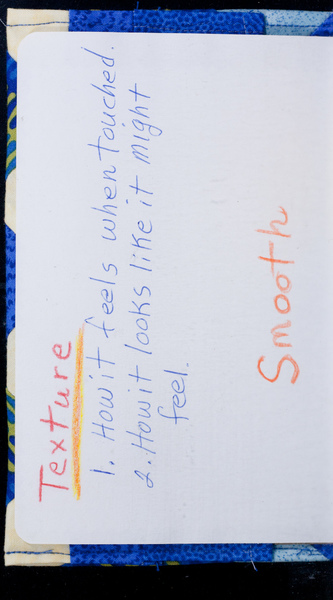 Texture
1. How it feels when touched.
2. How it looks like it might
feel.
Smooth